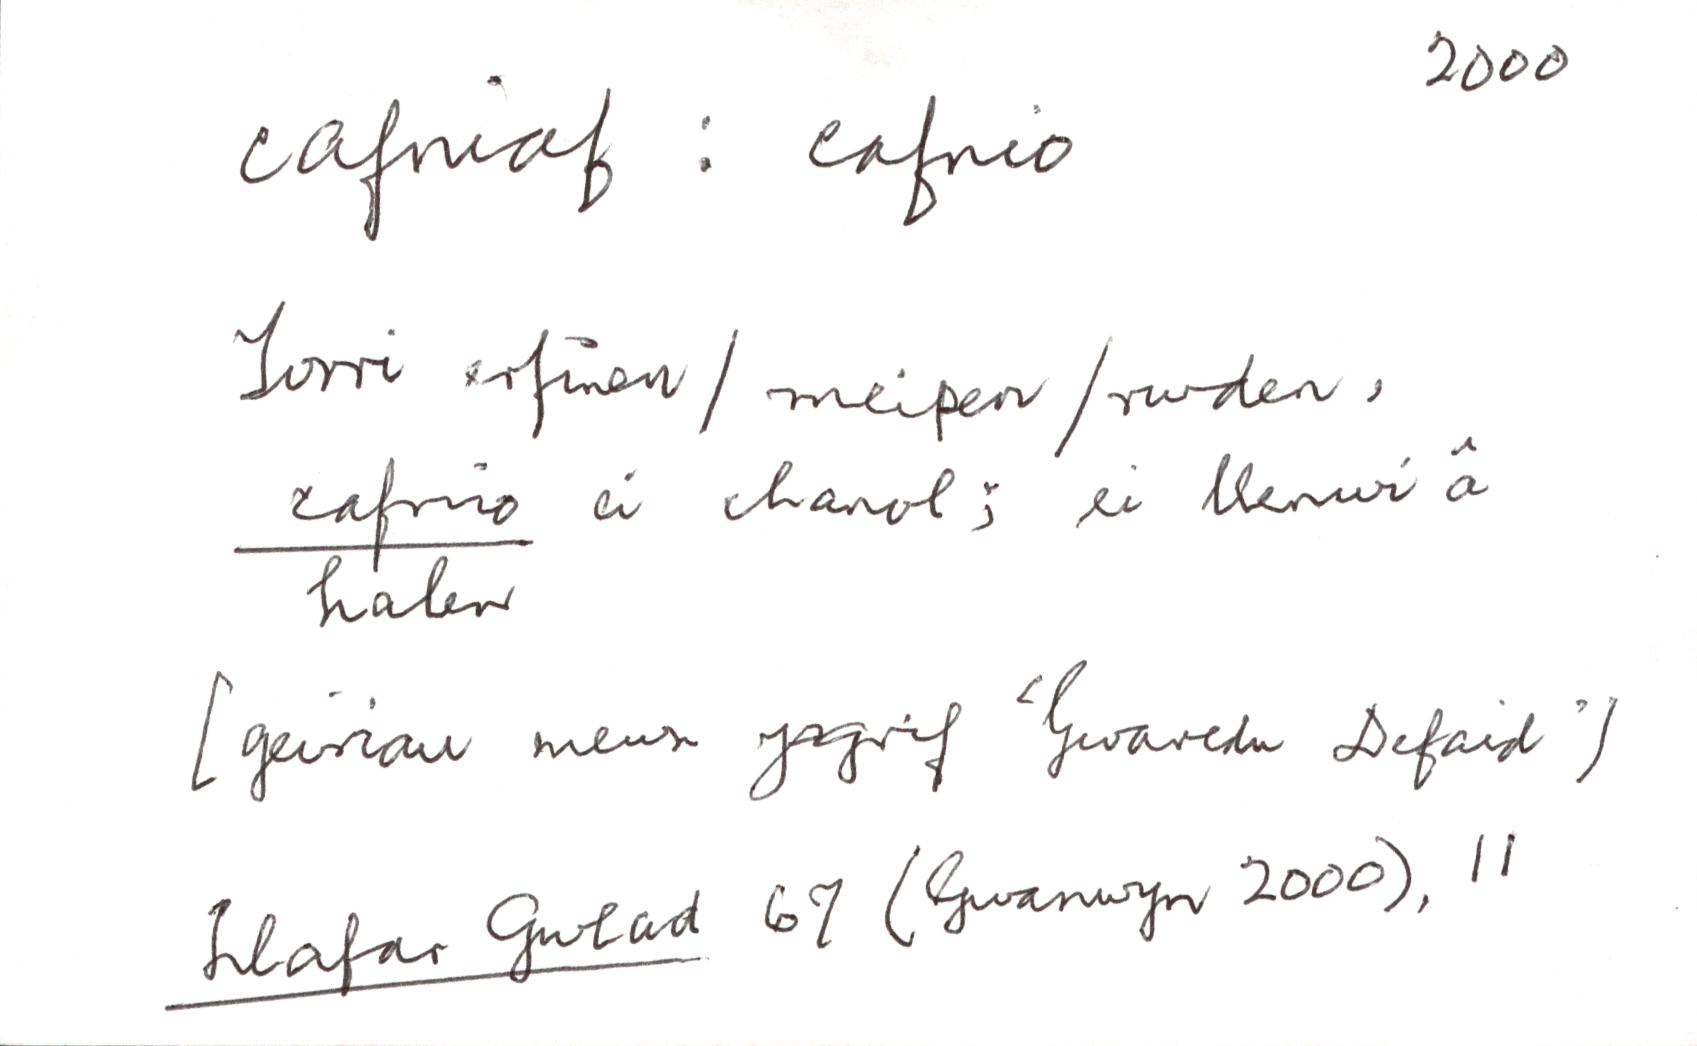 2000
cafniaf : cafnio
Torri erfinen / meipen / rwden,
cafnio ei chanol; ei llenwi â
halen
[geiriau mewn ysgrif 'Gwaredu Defaid']
Llafar Gwlad 67 (Gwanwyn 2000), 11